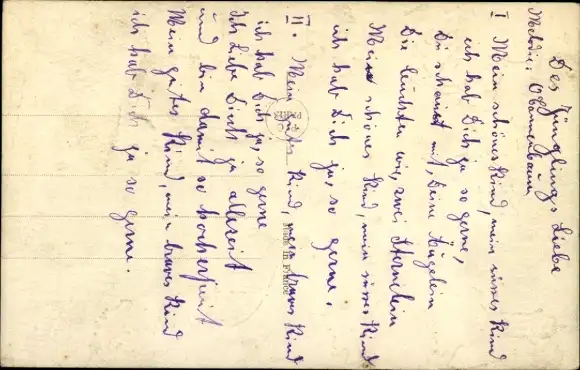 Des Jünglings Liebe
Melodie: O Tannenbaum
I Mein schönes Kind, mein süsses Kind
ich hab Dich ja so gerne,
Du schaust mit, Deine Äugelein
Die leuchten wie, zwei Sternelein
Mein schönes Kind, mein süsses Kind
ich hab Dich ja, so gerne.
II. Mein gutes Kind, mein braves Kind
ich hab Dich ja, so gerne
Ich Liebe Dich ja allezeit
und bin damit so hocherfreut
Mein gutes Kind, mein braves Kind
ich hab Dich ja so gerne.
PARIS
Made in France